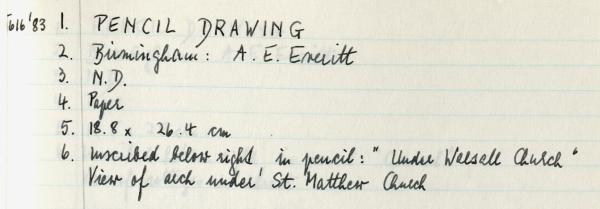 616'83 1. PENCIL DRAWING
2. Birmingham: A. E. Everitt
3. N.D.
4. Paper
5. 18.8 x 26.4 cm
6. inscribed below right in pencil: "Under Walsall Church"
View of arch under' St. Matthew Church